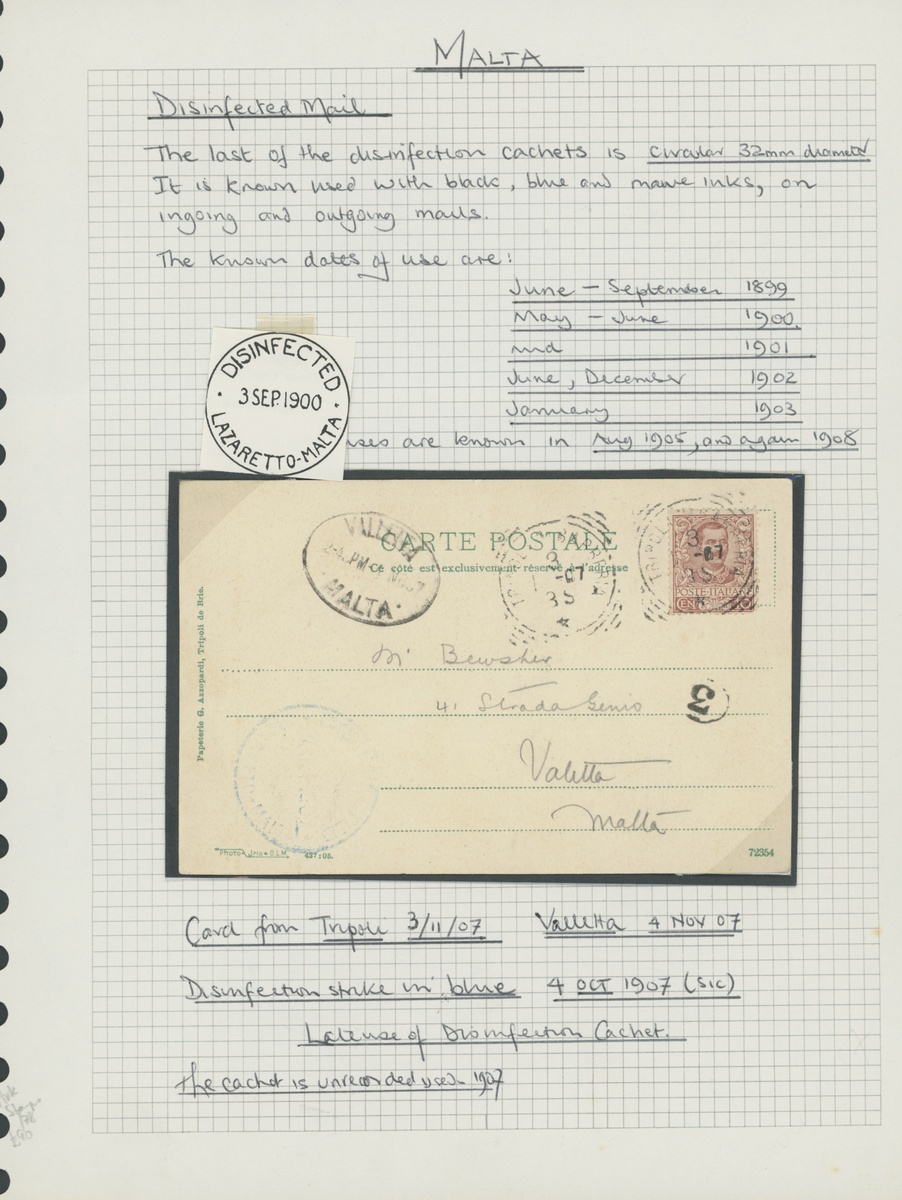 MALTA
Disinfected Mail
The last of the disinfection cachets is circular 32mm diameter
It is known used with black, blue and mauve inks, on
ingoing and outgoing mails.
The known dates of use are:
June - September 1899
May - June 1900.
mid 1901
June, December 1902
January 1903
uses are known in Aug 1905, and again 1908
DISINFECTED
3 SEP. 1900
LAZARETTO-MALTA
CARTE POSTALE
Ce côté est exclusivement réservé à l'adresse
VALLETTA
PM
MALTA
TRIPOLI
3
-07
3S
TRIPOLI
3
-07
3S
POSTE ITALIANE
Papeterie G. Azzopardi, Tripoli de Brie.
Mr Bewsher
41 Strada Genio
3
Valetta
Malta
437:05.
72354
Card from Tripoli 3/11/07 Valletta 4 NOV 07
Disinfection strike in blue 4 OCT 1907 (sic)
Late use of Disinfection Cachet.
The cachet is unrecorded used 1907
£90